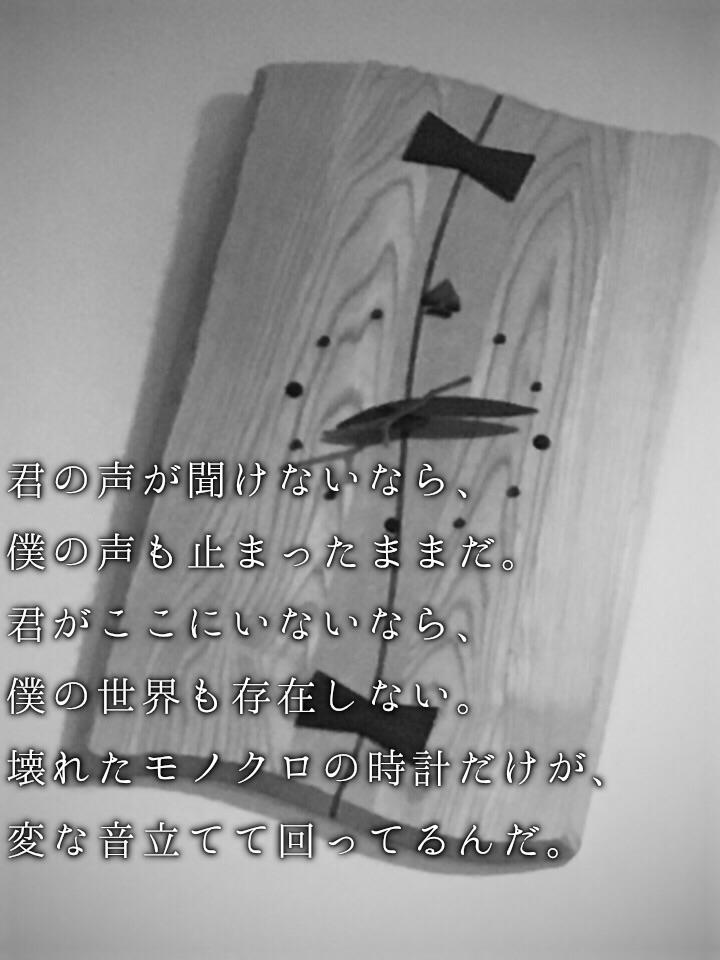 君の声が聞けないなら、
僕の声も止まったままだ。
君がここにいないなら、
僕の世界も存在しない。
壊れたモノクロの時計だけが、
変な音立てて回ってるんだ。